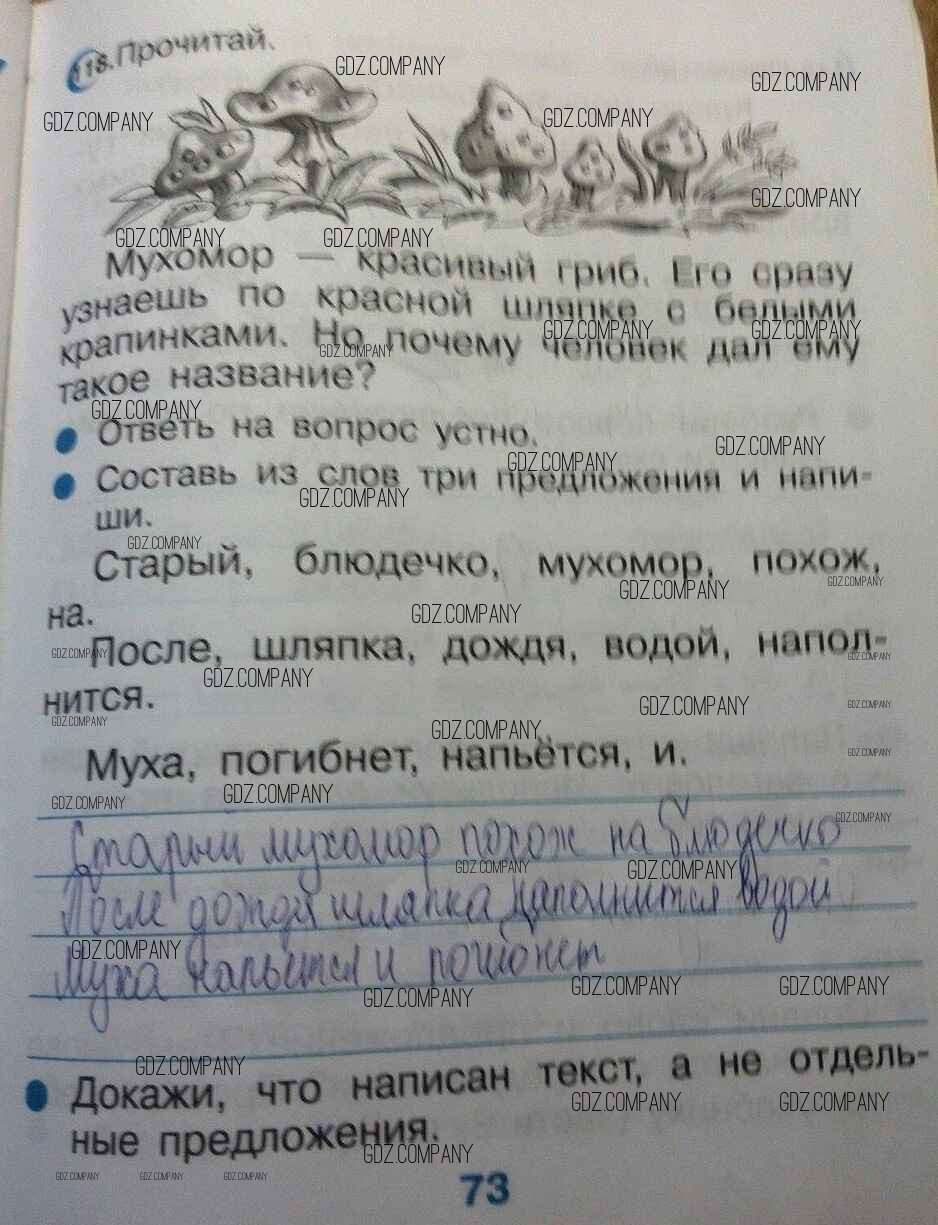 118. Прочитай.
Мухомор — красивый гриб. Его сразу
узнаешь по красной шляпке с белыми
крапинками. Но почему человек дал ему
такое название?
Ответь на вопрос устно.
Составь из слов три предложения и напи-
ши.
Старый, блюдечко, мухомор, похож,
на.
После, шляпка, дождя, водой, напол-
нится.
Муха, погибнет, напьётся, и.
Старый мухомор похож на блюдечко
После дождя шляпка наполнится водой
Муха напьется и погибнет
Докажи, что написан текст, а не отдель-
ные предложения.
73
GDZ.COMPANY